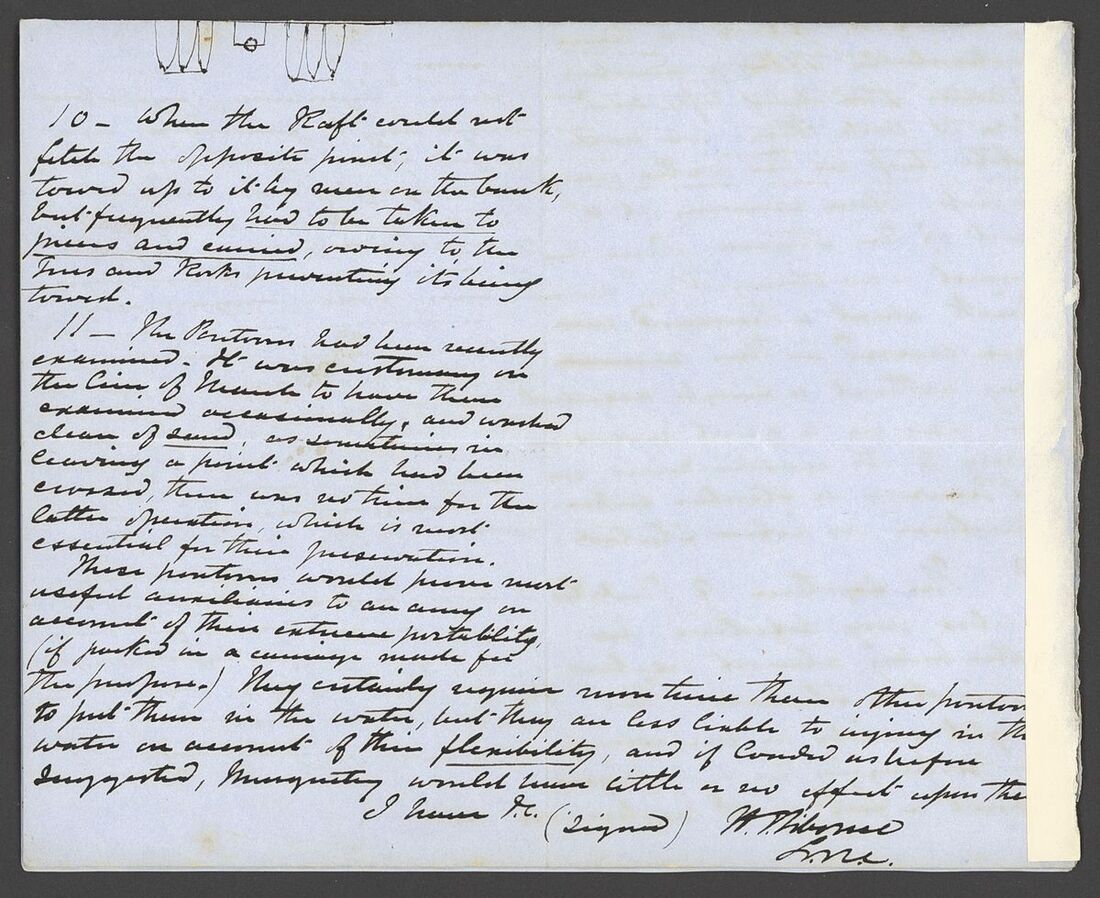 10 - When the Raft could not
fetch the opposite point, it was
towed up to it by men on the bank,
but frequently had to be taken to
pieces and carried, owing to the
Trees and Rocks preventing its being
towed.
11 - The Pontoons had been recently
examined - It was customary on
the line of March to have them
examined occasionally, and washed
clean of sand, as sometimes in
leaving a point which had been
crossed, there was no time for the
latter operation, which is most
essential for their preservation.
These pontoons would prove most
useful auxiliaries to an army on
account of their extreme portability,
(if packed in a carriage made for
the purpose.) They certainly require more time than other pontoon
to put them in the water, but they are less liable to injury in th
water on account of their flexibility, and if as before
suggested, Musquetry would have little or no effect upon the
I have &c. (signed) W.